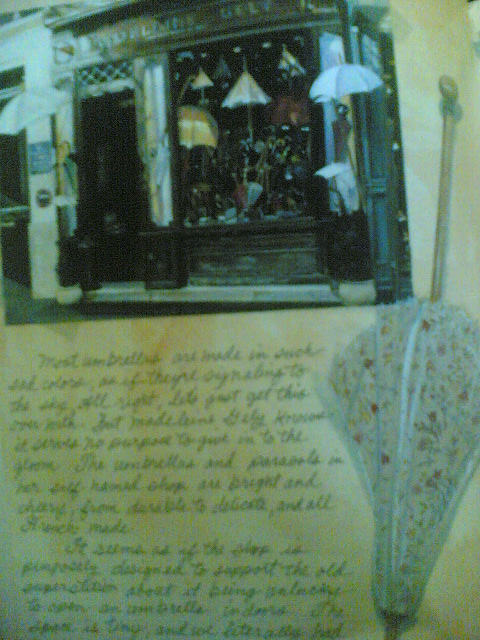 Most umbrellas are made in such
sad colors, as if they're signaling to
the sky, All right, lets just get this
over with. But Madeleine Gely knows
it serves no purpose to give in to the
gloom. The umbrellas and parasols in
her self named shop are bright and
cheery, from durable to delicate, and all
French made.
It seems as if the shop is
purposely designed to support the old
superstition about it being unlucky
to open an umbrella indoors. The
space is tiny, and we literally had